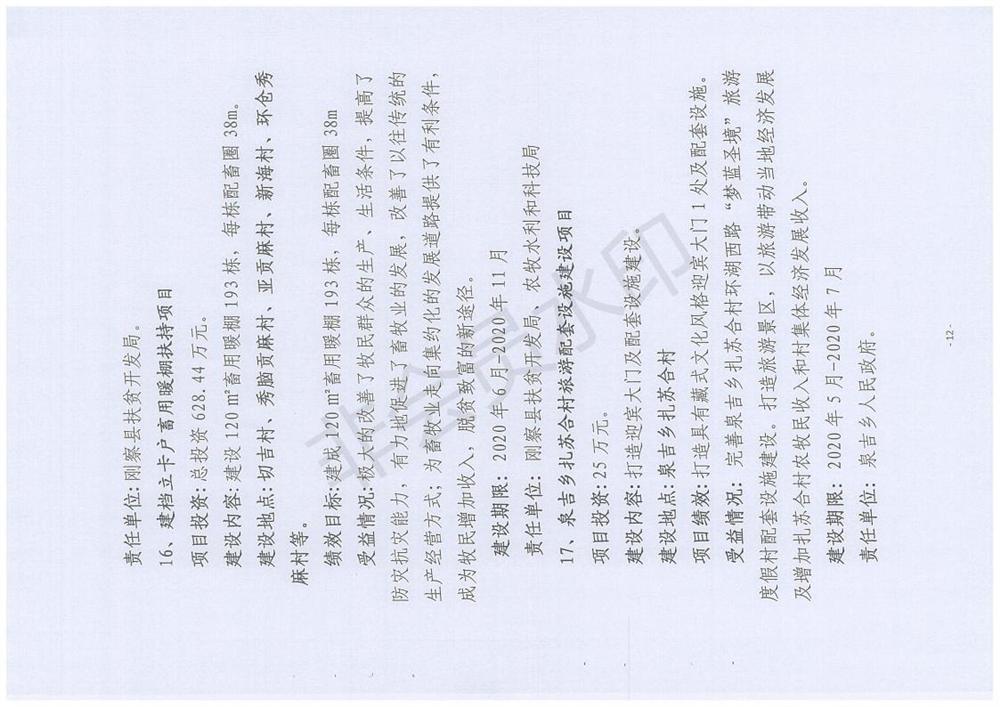 责任单位: 刚察县扶贫开发局。
16、建档立卡户畜用暖棚扶持项目
项目投资: 总投资 628.44 万元。
建设内容: 建设 120 ㎡畜用暖棚 193 栋, 每栋配畜圈 38m。
建设地点: 切吉村、秀脑贡麻村、亚贡麻村、新海村、环仓秀
麻村等。
绩效目标: 建成 120 ㎡畜用暖棚 193 栋, 每栋配畜圈 38m
受益情况: 极大的改善了牧民群众的生产、生活条件, 提高了
防灾抗灾能力, 有力地促进了畜牧业的发展, 改善了以往传统的
生产经营方式; 为畜牧业走向集约化的发展道路提供了有利条件,
成为牧民增加收入, 脱贫致富的新途径。
建设期限: 2020 年 6 月-2020 年 11 月
责任单位: 刚察县扶贫开发局、农牧水利和科技局
17、泉吉乡扎苏合村旅游配套设施建设项目
项目投资: 25 万元。
建设内容: 打造迎宾大门及配套设施建设。
建设地点: 泉吉乡扎苏合村
项目绩效: 打造具有藏式文化风格迎宾大门 1 处及配套设施。
受益情况: 完善泉吉乡扎苏合村环湖西路“梦蓝圣境”旅游
度假村配套设施建设。打造旅游景区, 以旅游带动当地经济发展
及增加扎苏合村农牧民收入和村集体经济发展收入。
建设期限: 2020 年 5 月-2020 年 7 月
责任单位: 泉吉乡人民政府。
-12-
非会员水印